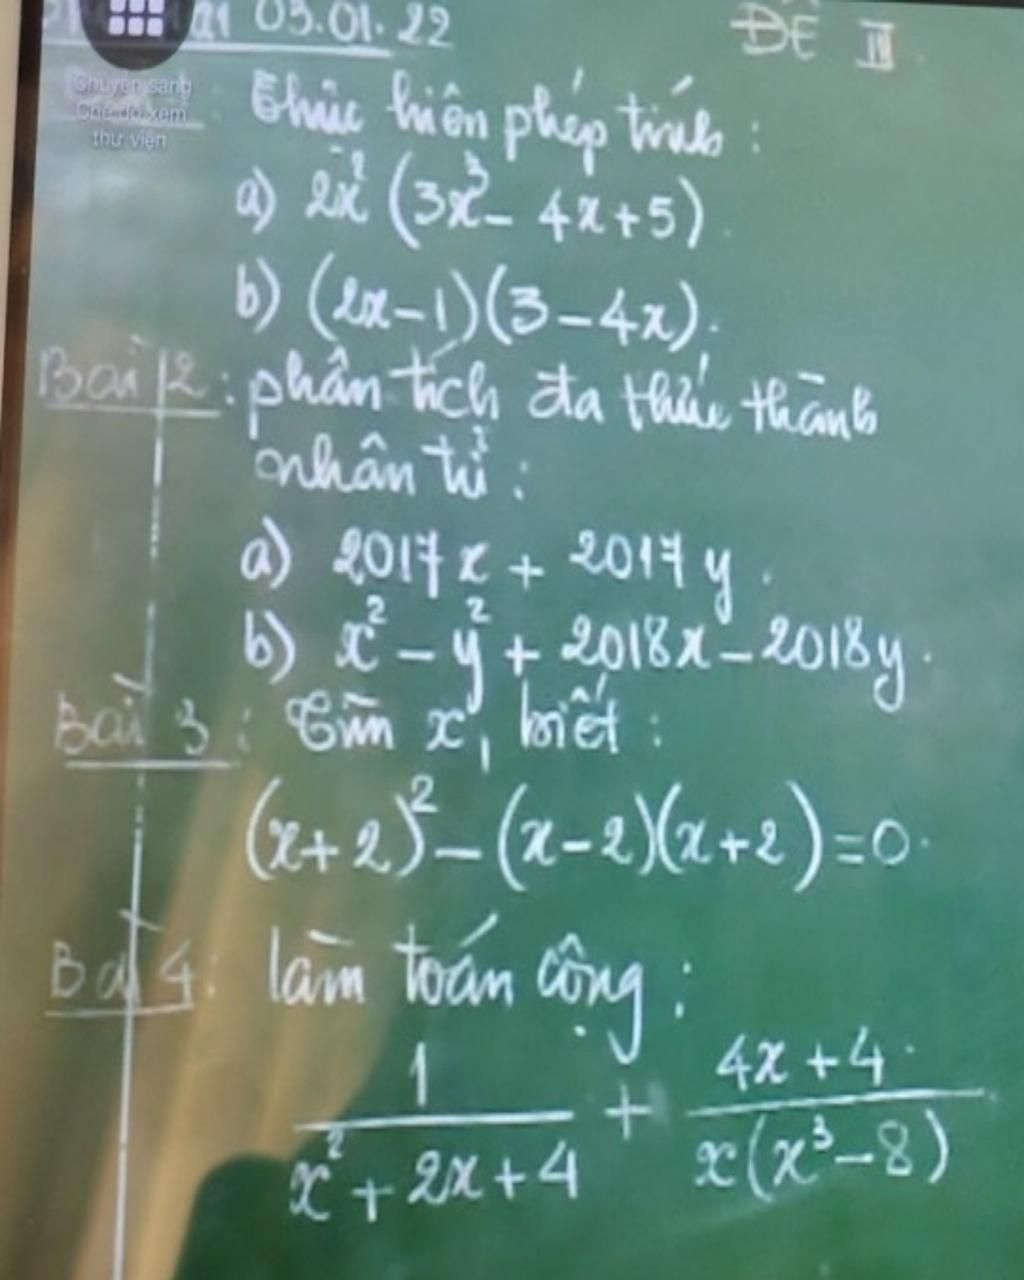 03.01.22 ĐỀ III
Chuyển sang
Chế độ xem
thư viện
Thực hiện phép tính :
a) 2x² (3x³ - 4x + 5)
b) (2x - 1)(3 - 4x).
Bài 2 : phân tích đa thức thành
nhân tử :
a) 2017x + 2017y.
b) x² - y² + 2018x - 2018y.
Bài 3 : Tìm x, biết :
(x + 2)² - (x - 2)(x + 2) = 0.
Bài 4 : làm toán cộng :
1 / (x² + 2x + 4) + (4x + 4) / (x(x³ - 8))